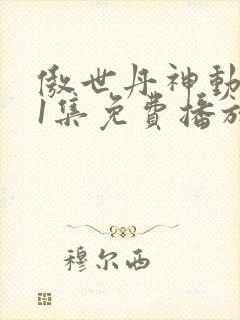 傲世丹神動
1集免費播放
穆尔西